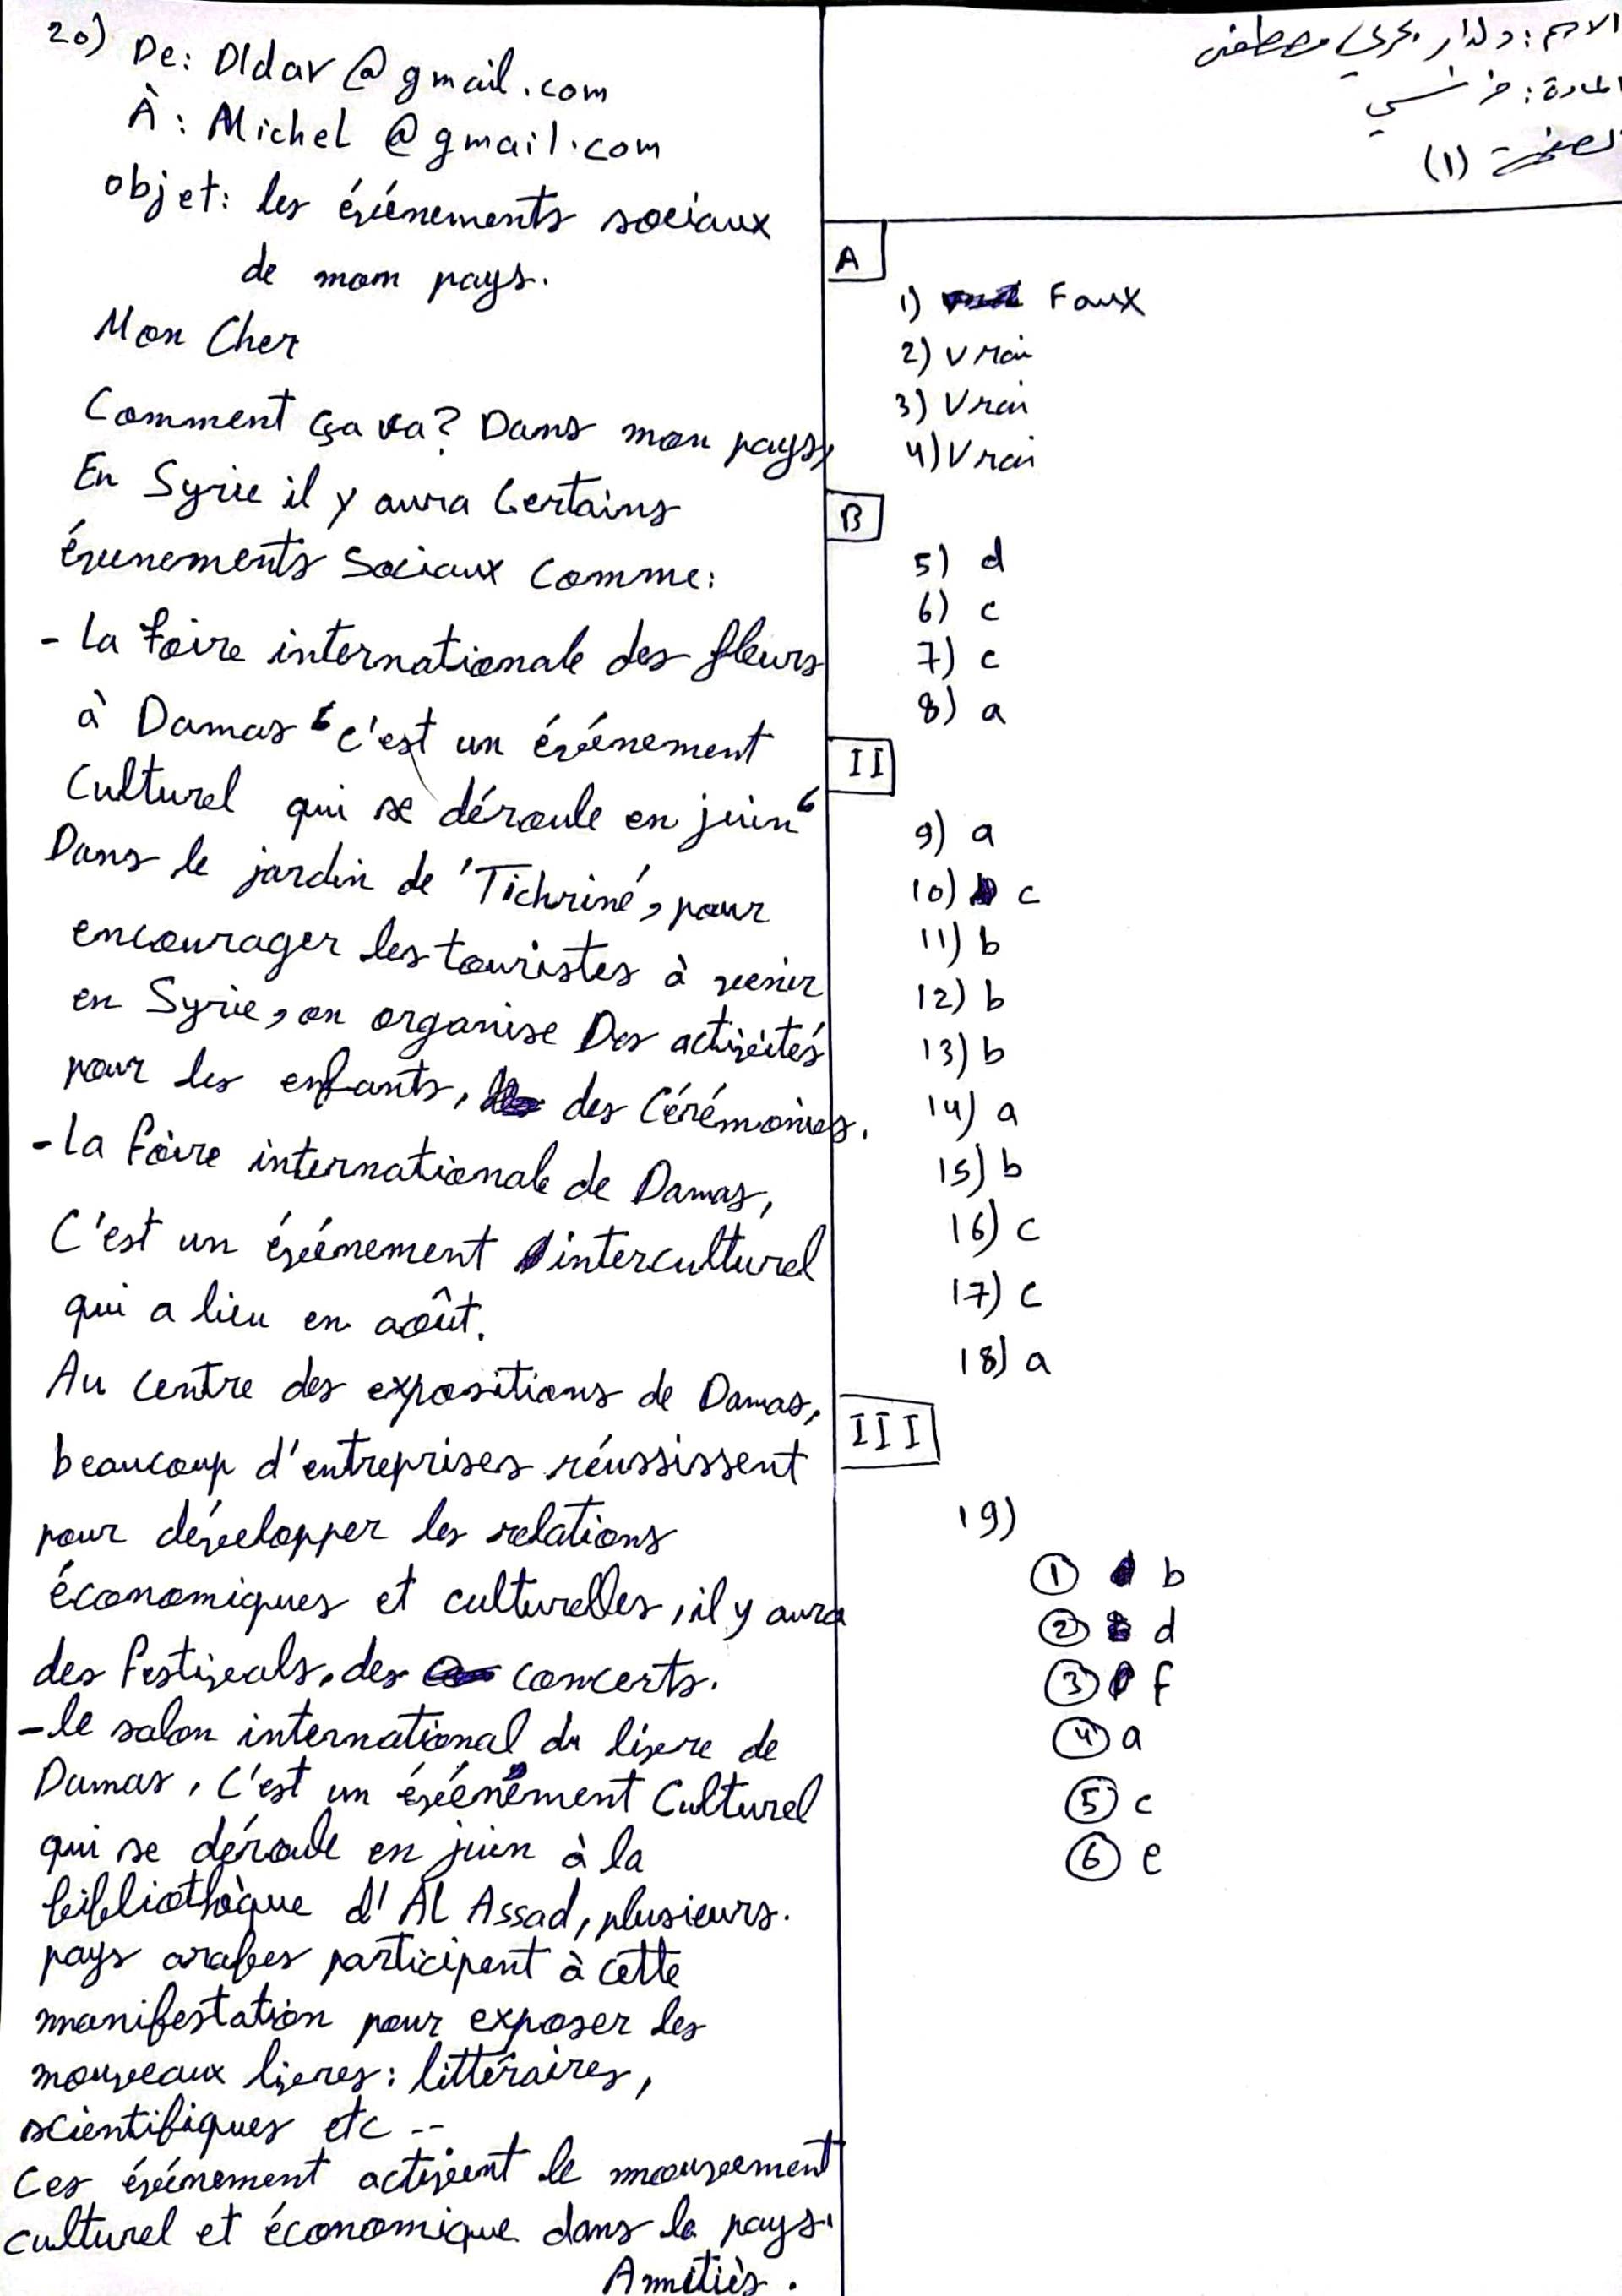 الاسم: دلدار بحري مصطفى
المادة: فرنسي
الصفحة (1)
A
1) Faux
2) Vrai
3) Vrai
4) Vrai
B
5) d
6) c
7) c
8) a
II
9) a
10) c
11) b
12) b
13) b
14) a
15) b
16) c
17) c
18) a
III
19)
① b
② d
③ f
④ a
⑤ c
⑥ e
20)
De: Dldar@gmail.com
À: Michel@gmail.com
objet: les événements sociaux
de mon pays.
Mon Cher
Comment ça va? Dans mon pays,
En Syrie il y aura Certains
évenements Sociaux Comme:
- La foire internationale des fleurs
à Damas, c'est un événement
Culturel qui se déroule en juin,
Dans le jardin de 'Tichriné, pour
encourager les touristes à venir
en Syrie, on organise Des activités
pour les enfants, des Cérémonies.
- La foire internationale de Damas,
C'est un événement interculturel
qui a lieu en août.
Au Centre des expositions de Damas,
beaucoup d'entreprises réussissent
pour développer les relations
économiques et culturelles, il y aura
des festivals, des concerts.
- le salon international du livre de
Damas, C'est un événement Culturel
qui se déroule en juin à la
bibliothèque d'Al Assad, plusieurs.
pays arabes participent à cette
manifestation pour exposer les
nouveaux livres: littéraires,
scientifiques etc --
Ces événement activent le mouvement
culturel et économique dans le pays.
Amitiès.